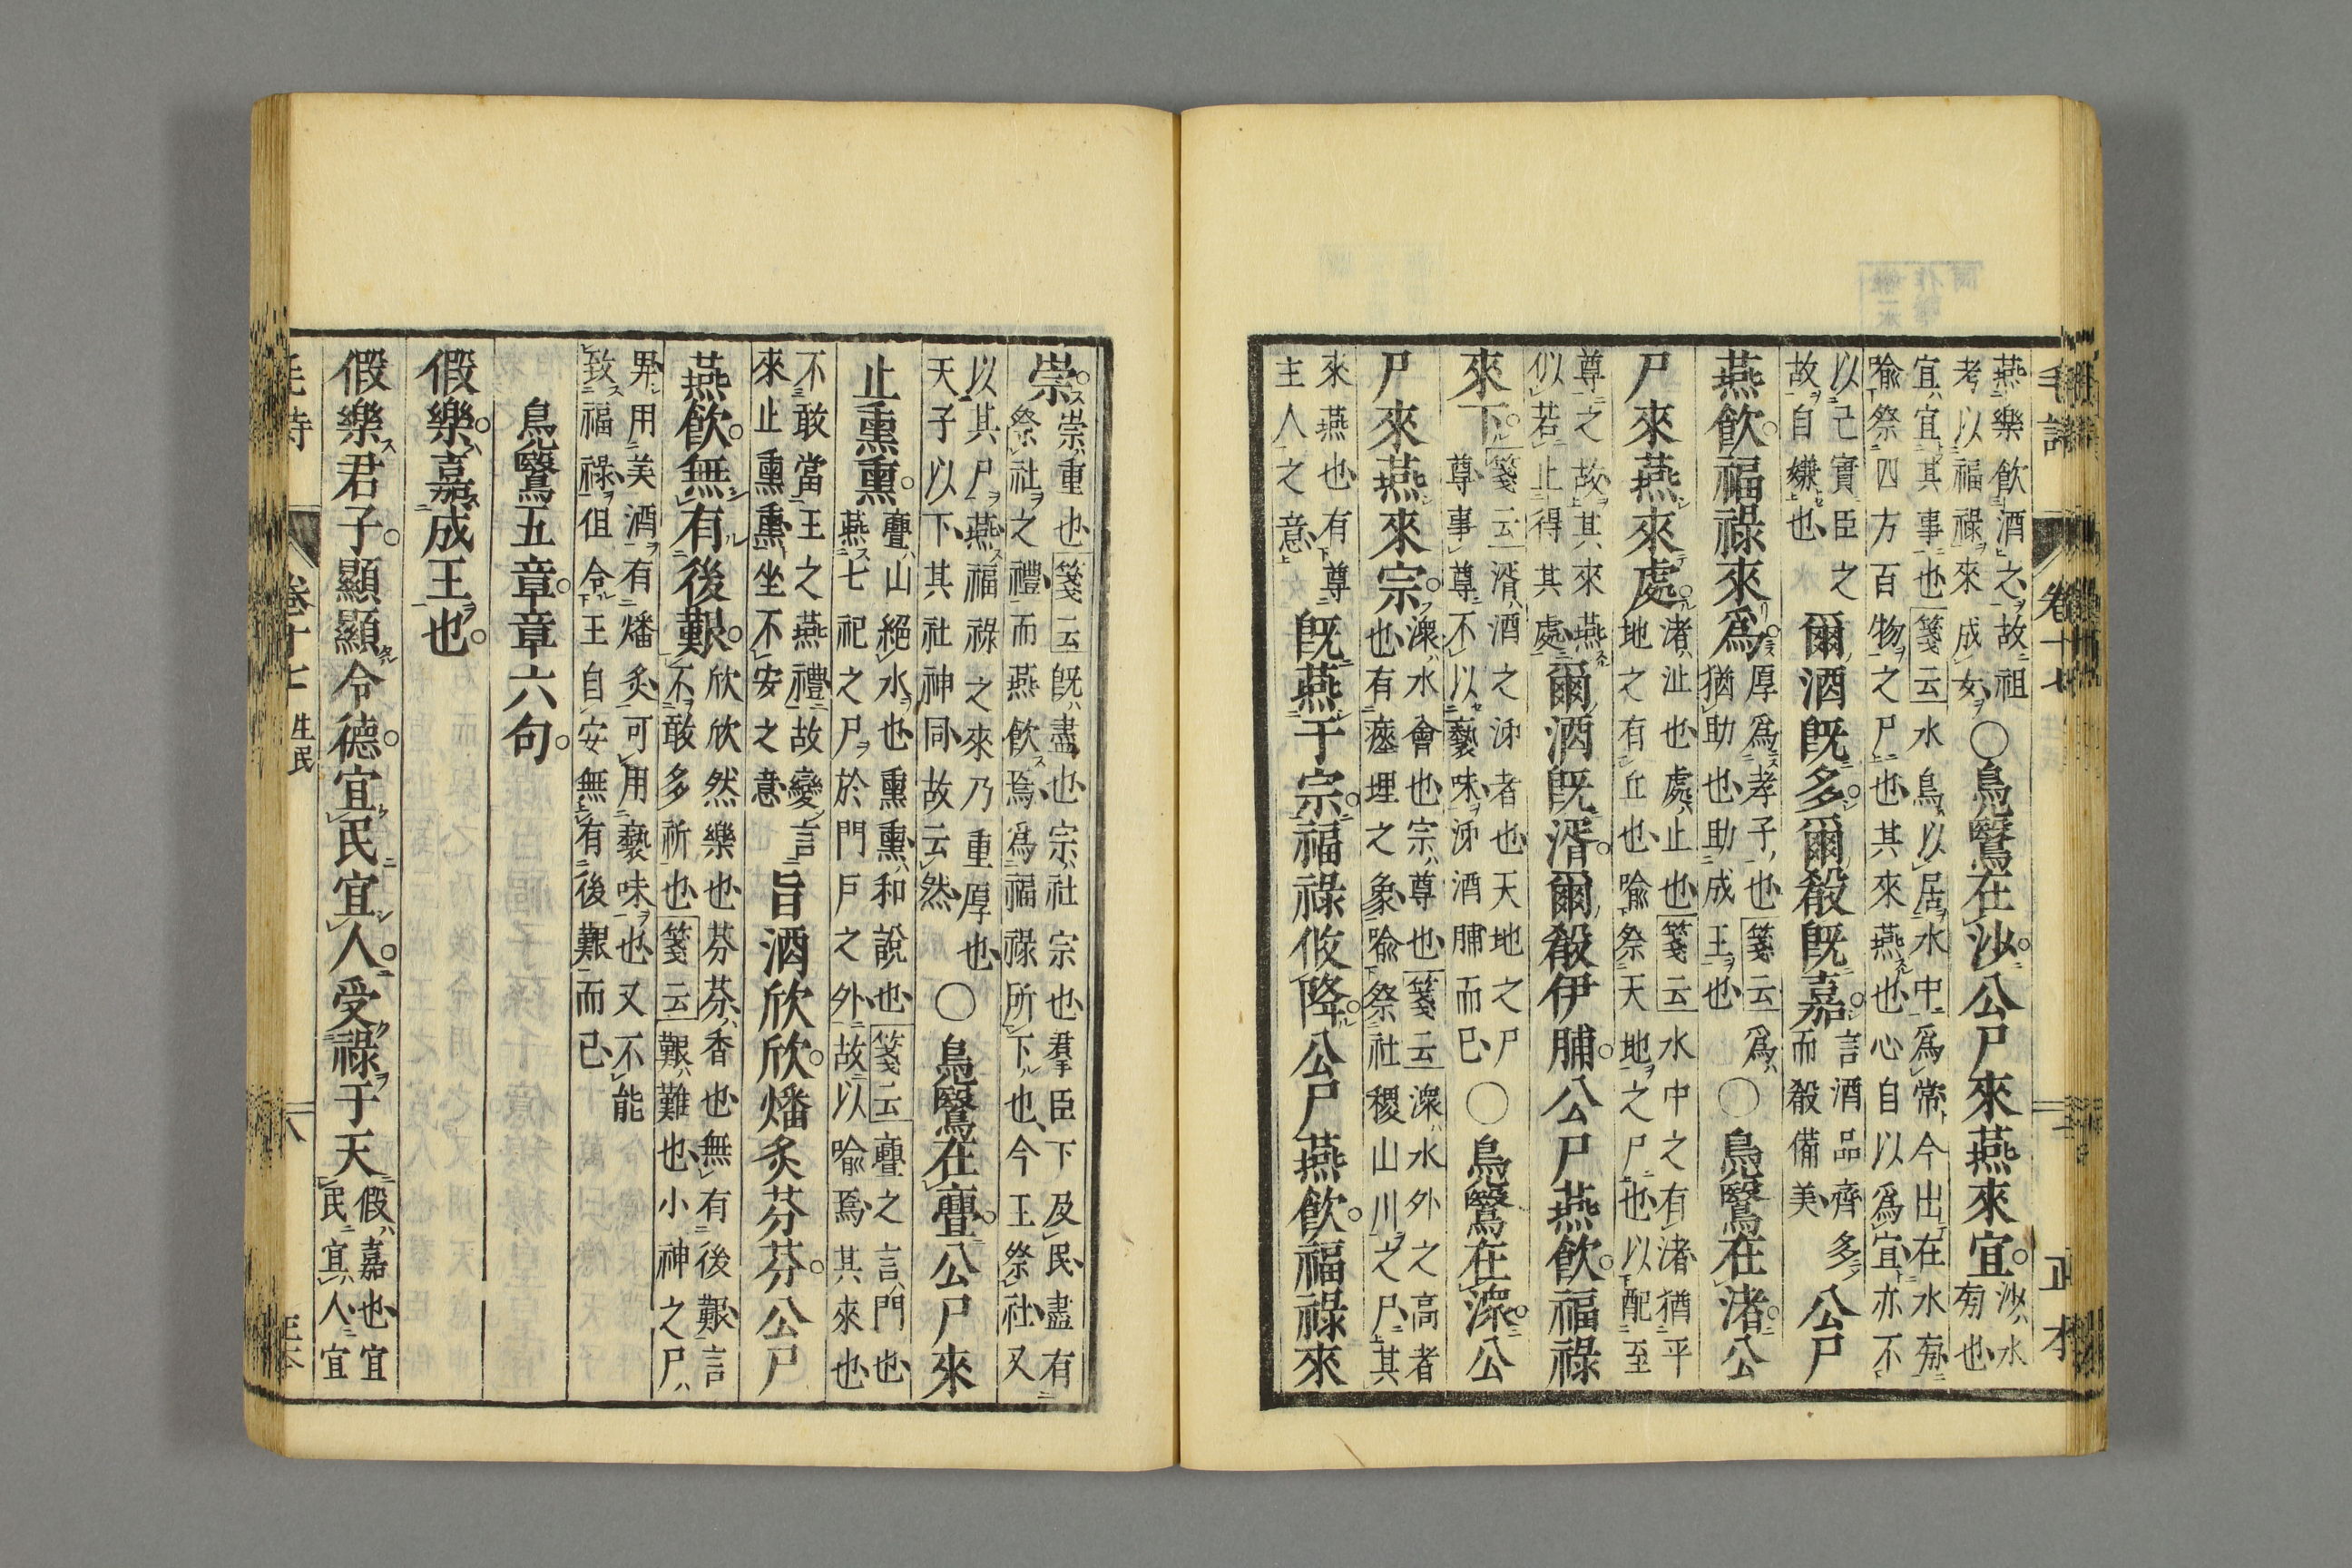 毛詩 卷十七
燕樂飲酒之故祖
考以福祿來成女
○鳧鷖在沙公尸來燕來宜
沙水
㫄也
宜宜其事也箋云水鳥以居水中爲常今出在水㫄
喻祭四方百物之尸也其來燕也心自以爲宜亦不
以己實臣之
故自嫌也
爾酒既多爾殽既嘉
言酒品齊多
而殽備美
公尸
燕飲福祿來爲
厚爲孝子也箋云爲
猶助也助成王也
○鳧鷖在渚公
尸來燕來處
渚沚也處止也箋云水中之有渚猶平
地之有丘也喻祭天地之尸也以配至
尊之故其來燕
似若止得其處
爾酒既湑爾殽伊脯公尸燕飲福祿
來下
箋云湑酒之泲者也天地之尸
尊事尊不以褻味泲酒脯而已
○鳧鷖在潀公
尸來燕來宗
潀水會也宗尊也箋云潀水外之高者
也有瘞埋之象喻祭社稷山川之尸其
來燕也有尊
主人之意
既燕于宗福祿攸降公尸燕飲福祿來
崇
崇重也箋云既盡也宗社宗也羣臣下及民盡有
祭社之禮而燕飲焉爲福祿所下也今王祭社又
以其尸燕福祿之來乃重厚也
天子以下其社神同故云然
○鳧鷖在亹公尸來
止熏熏
亹山絕水也熏熏和說也箋云亹之言門也
燕七祀之尸於門戶之外故以喻焉其來也
不敢當王之燕禮故變言
來止熏熏坐不安之意
旨酒欣欣燔炙芬芬公尸
燕飲無有後艱
欣欣然樂也芬芬香也無有後艱言
不敢多祈也箋云艱難也小神之尸
畀用美酒有燔炙可用褻味也又不能
致福祿但令王自安無有後艱而已
鳧鷖五章章六句
假樂嘉成王也
假樂君子顯顯令德宜民宜人受祿于天
假嘉也宜
民宜人宜
毛詩 卷十七 生民 八